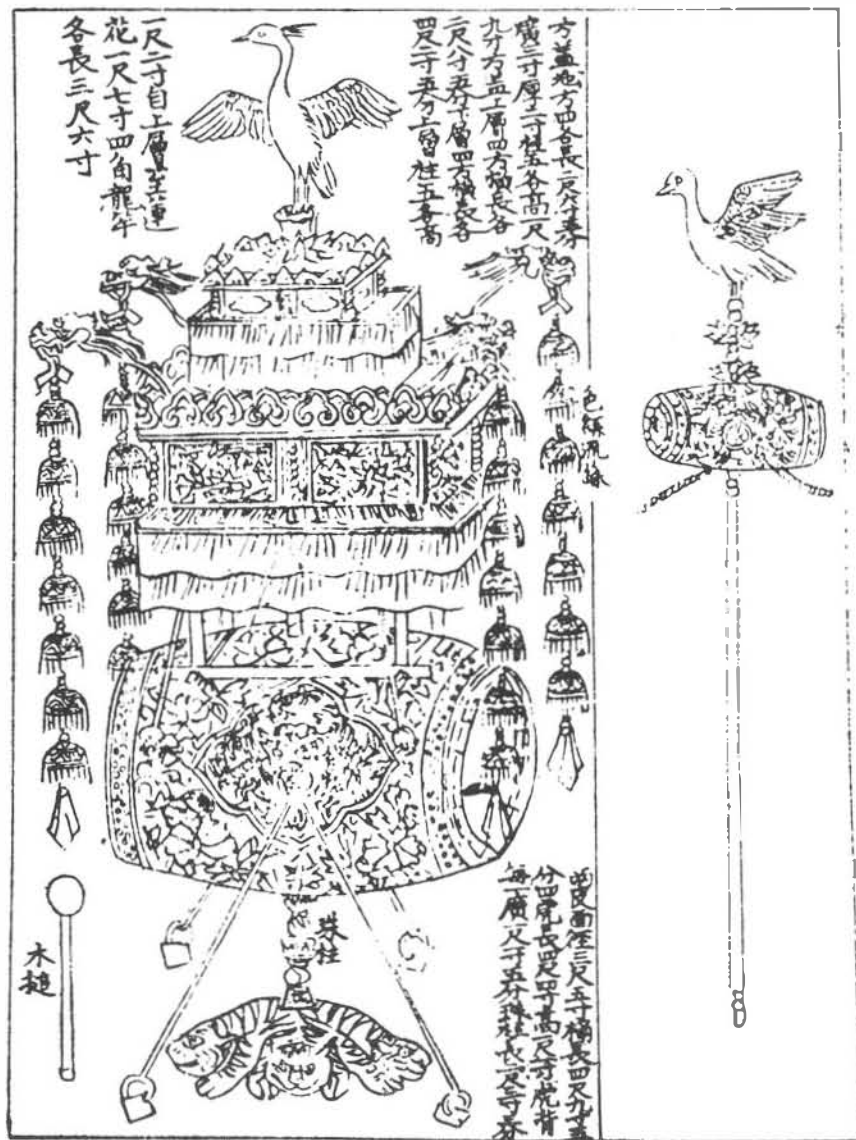 方盖地方四各長二尺八寸五分
廣三寸厚二寸柱五各高一尺
九寸方盖上層四方橫長各
二尺八寸五分下層四方橫長各
四尺二寸五分上層柱五各高
一尺二寸自上層至蓮
花一尺七寸四角龍竿
各長三尺六寸
色線流蘇
皮面徑三尺五寸桶長四尺九寸五
分四虎長四尺四寸高一尺寸虎背
每廣一尺寸五分珠柱長一尺三寸五分
珠柱
木搥